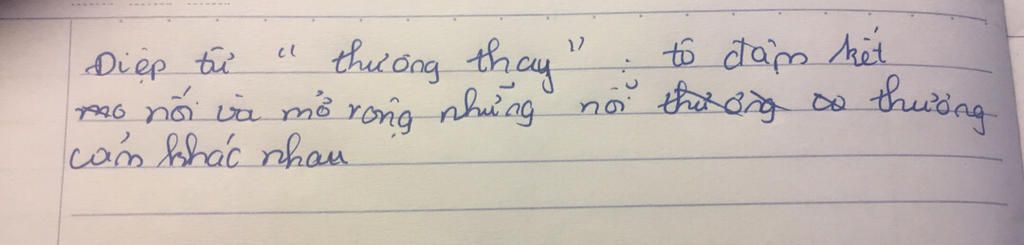 Điệp từ " thương thay " : tô đậm kết
nối và mở rộng những nỗi thương
cảm khác nhau